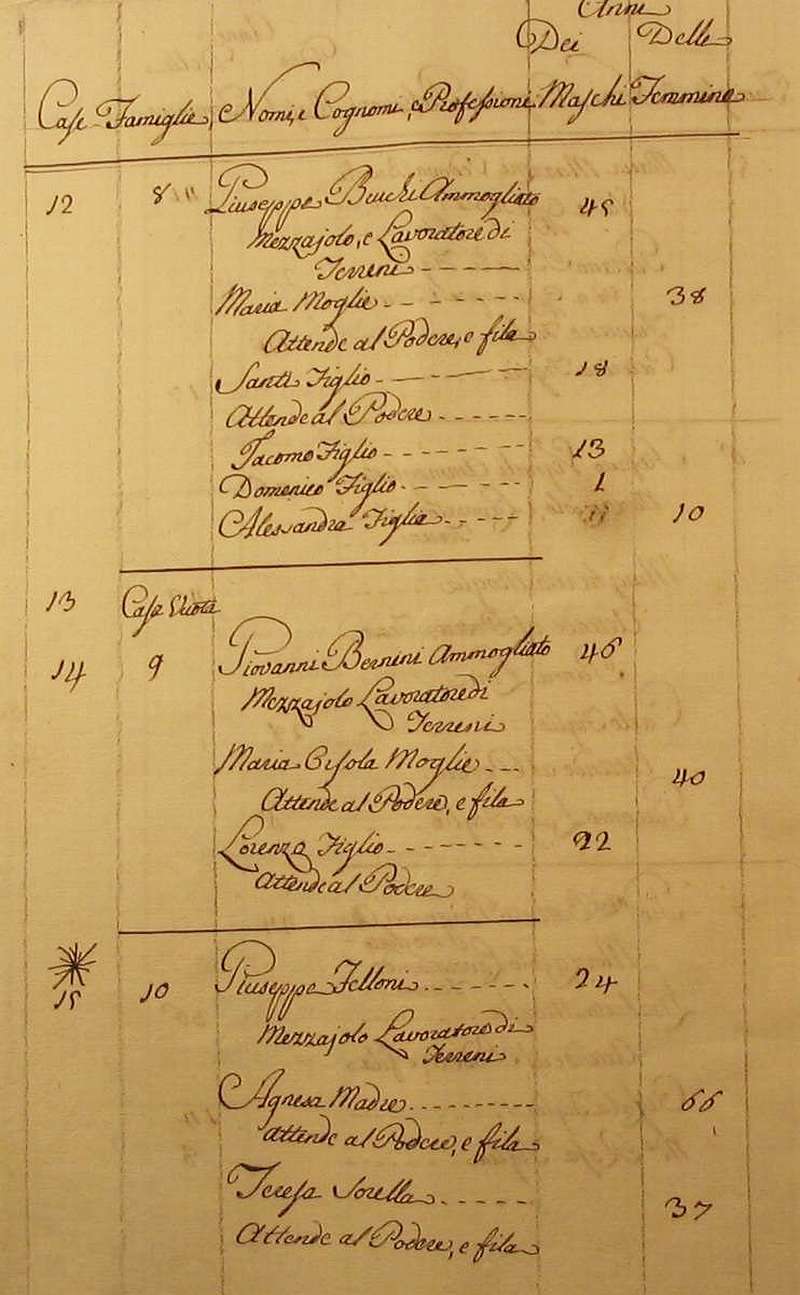 Anni
Dei Delle
Case Famiglie, Nomi, e Cognomi, e Professioni Maschi Femmine
12 8 Giuseppe Ammogliato 45
Mezzajolo, e Lavoratore di
Terreni
Maria Moglie 38
Attende al Podere, e fila
Santi Figlio 18
Attende al Podere
Giacomo Figlio 13
Domenico Figlio 1
Alessandra Figlia 10
13 Casa Vuota
14 9 Giovanni Bernini Ammogliato 46
Mezzajolo Lavoratore di
Terreni
Maria Moglie 40
Attende al Podere, e fila
Lorenzo Figlio 22
Attende al Podere
15 10 Giuseppe Felloni 24
Mezzajolo Lavoratore di
Terreni
Agnesa Madre 66
attende al Podere, e fila
Teresa Sorella 37
Attende al Podere, e fila